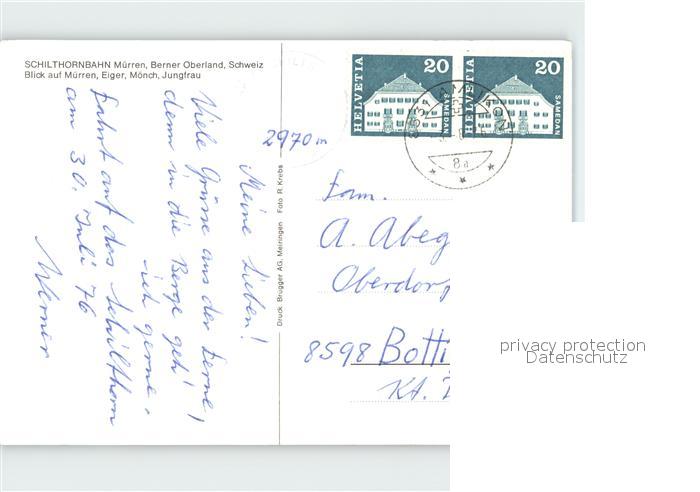 SCHILTHORNBAHN Mürren, Berner Oberland, Schweiz
Blick auf Mürren, Eiger, Mönch, Jungfrau
2970 m
Meine Lieben!
Viele Grüsse aus der Ferne,
denn in die Berge geh'
ich gerne.
Fahrt auf das Schilthorn
am 30. Juli 76
Werner
Druck: Brugger AG, Meiringen Foto R. Krebs
HELVETIA
20
SAMEDAN
HELVETIA
20
SAMEDAN
8a
Fam.
A. Abeg
Oberdor
8598 Botti
Kt.
privacy protection
Datenschutz